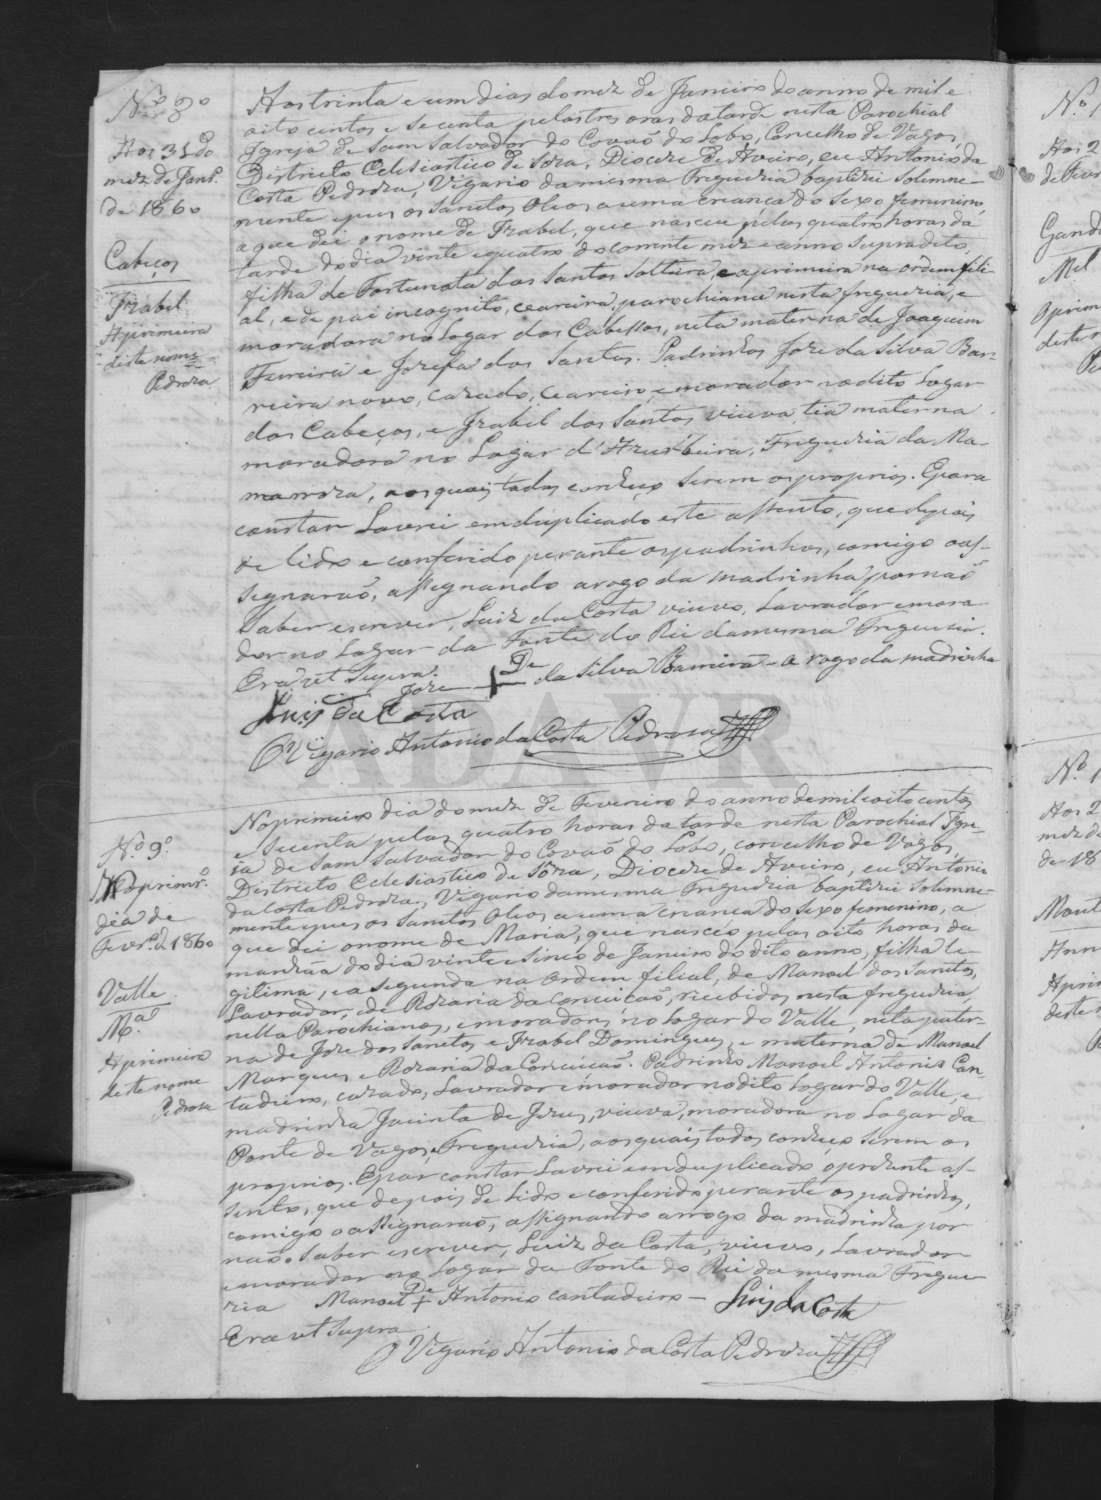 N.º 8º
Aos 31 do
mez de Janr.º
de 1860
Cabeços
Izabel
A primeira
deste nome
Pedroza
Aos trinta e um dias do mez de Janeiro do anno de mil e
oito centos e secenta pelas tres oras da tarde nesta Parochial
Igreja de Sam Salvador do Covaõ do Lobo, Concelho de Vagos,
Districto Eclesiastico de Soza, Dioceze de Aveiro, eu Antonio da
Costa Pedroza, Vigario da mesma Freguezia baptizei solemne-
mente e pus os Santos Oleos a uma criança do sexo femenino,
a que dei o nome de Izabel, que nasceu pelas quatro horas da
tarde do dia vinte e quatro do corrente mez e anno supradito,
filha de Fortunata dos Santos solteira, e a primeira na ordem fili-
al, e de pai incognito, ceareira, parochiana nesta freguezia, e
moradora no Logar dos Cabessos, neta materna de Joaquim
Ferreira e Jozefa dos Santos. Padrinhos Joze da Silva Bar-
reira novo, cazado, ceareiro, e morador no dito Logar
dos Cabeços, e Izabel dos Santos viuva, tia materna
moradora no Lugar d'Azurbeira, Freguezia da Ma-
marroza, aos quais todos conheço serem os proprios. E para
constar Lavrei em duplicado este assento, que depois
de lido e conferido perante os padrinhos, comigo o as-
segnaraõ, assegnando a rogo da madrinha por naõ
saber escrever, Luiz da Costa viuvo, Lavrador e mora
dor no Lugar da Fonte do Rei da mesma Freguezia.
Era ut Supra.
Joze + De da Silva Barreira - A rogo da madrinha
Luis da Costa
O Vigario Antonio da Costa Pedroza
N.º 9º
No primr.º
dia de
Fevr.º d 1860
Valle
M.ª
A primeira
deste nome
Pedroza
No premeiro dia do mez de Fevereiro do anno de mil e oito centos
e secenta pelas quatro horas da tarde nesta Parochial Igre-
ja de Sam Salvador do Covaõ do Lobo, concelho de Vagos,
Districto Eclesiastico de Sôza, Dioceze de Aveiro, eu Antonio
da Costa Pedroza, Vigario da mesma Freguezia baptizei solemne-
mente e pus os Santos Oleos a uma criança do sexo femenino, a
que dei o nome de Maria, que nasceo pelas oito horas da
manhãa do dia vinte e sinco de Janeiro do dito anno, filha le-
gitima, e a segunda na ordem filial, de Manoel dos Santos,
Lavrador, e de Rozaria da Conceicaõ, recebidos nesta freguezia,
nella Parochianos, e moradores no Logar do Valle, neta pater-
na de Joze dos Santos e Izabel Domingues, e materna de Manoel
Marques e Rozaria da Conceicaõ. Padrinho Manoel Antonio Can-
tadeiro, cazado, Lavrador e morador no dito Logar do Valle, e
madrinha Jacinta de Jezus, viuva, moradora no Lugar da
Ponte de Vagos, Freguezia, aos quais todos conheço serem os
proprios. E par constar Lavrei em duplicado o prezente as-
sento, que depois de Lido e conferido perante os padrinhos,
comigo o assignaraõ, assignando arrogo da madrinha por
naõ saber escrever, Luiz da Costa, viuvo, Lavrador
e morador no Logar da Fonte do Rei da mesma Fregue-
zia Manoel + De Antonio Cantadeiro — Luis da Costa
Era ut Supra
O Vigario Antonio da Costa Pedroza
ADAVR